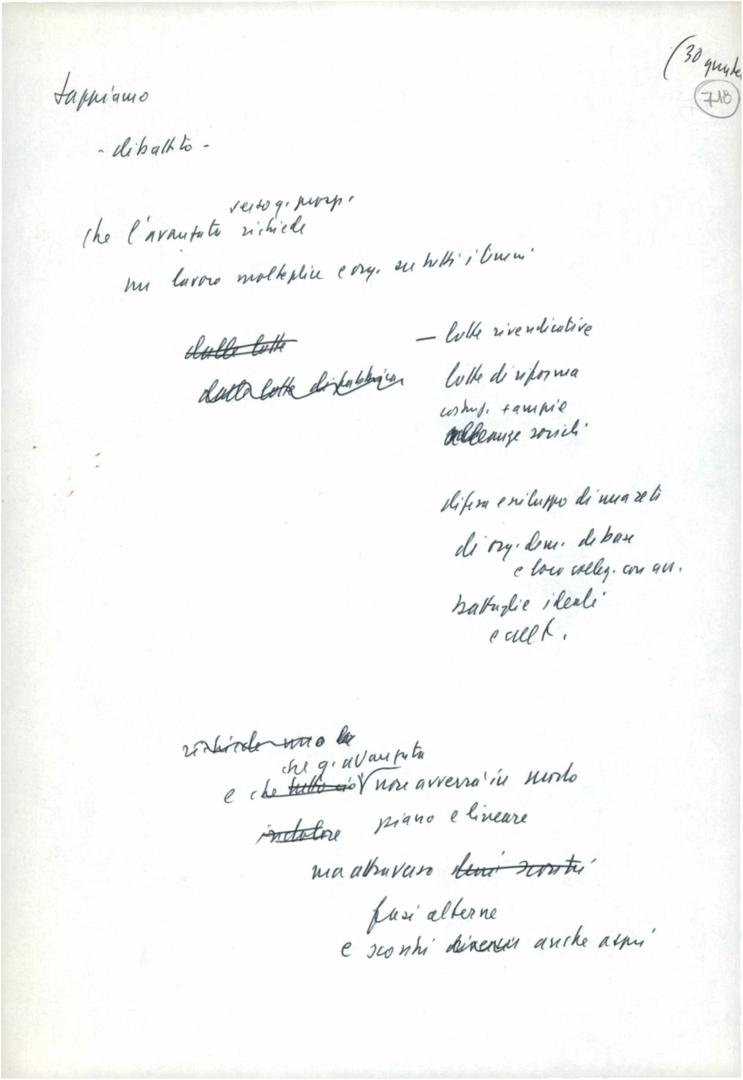 (30 quater
718
sappiamo
- dibattito -
verso q. prosp.
che l'avanzata richiede
un lavoro molteplice e org. su tutti i terreni
dalle lotte
dalla lotta di fabbrica
– lotte rivendicative
lotte di riforma
costruz. + ampie
alleanze sociali
difesa e sviluppo di una rete
di org. dem. di base
e loro colleg. con
battaglie ideali
e cult.
richiede uno
che q. avanzata
e che tutto ciò non avverrà in modo
indolore piano e lineare
ma attraverso scontri
fasi alterne
e scontri anche aspri